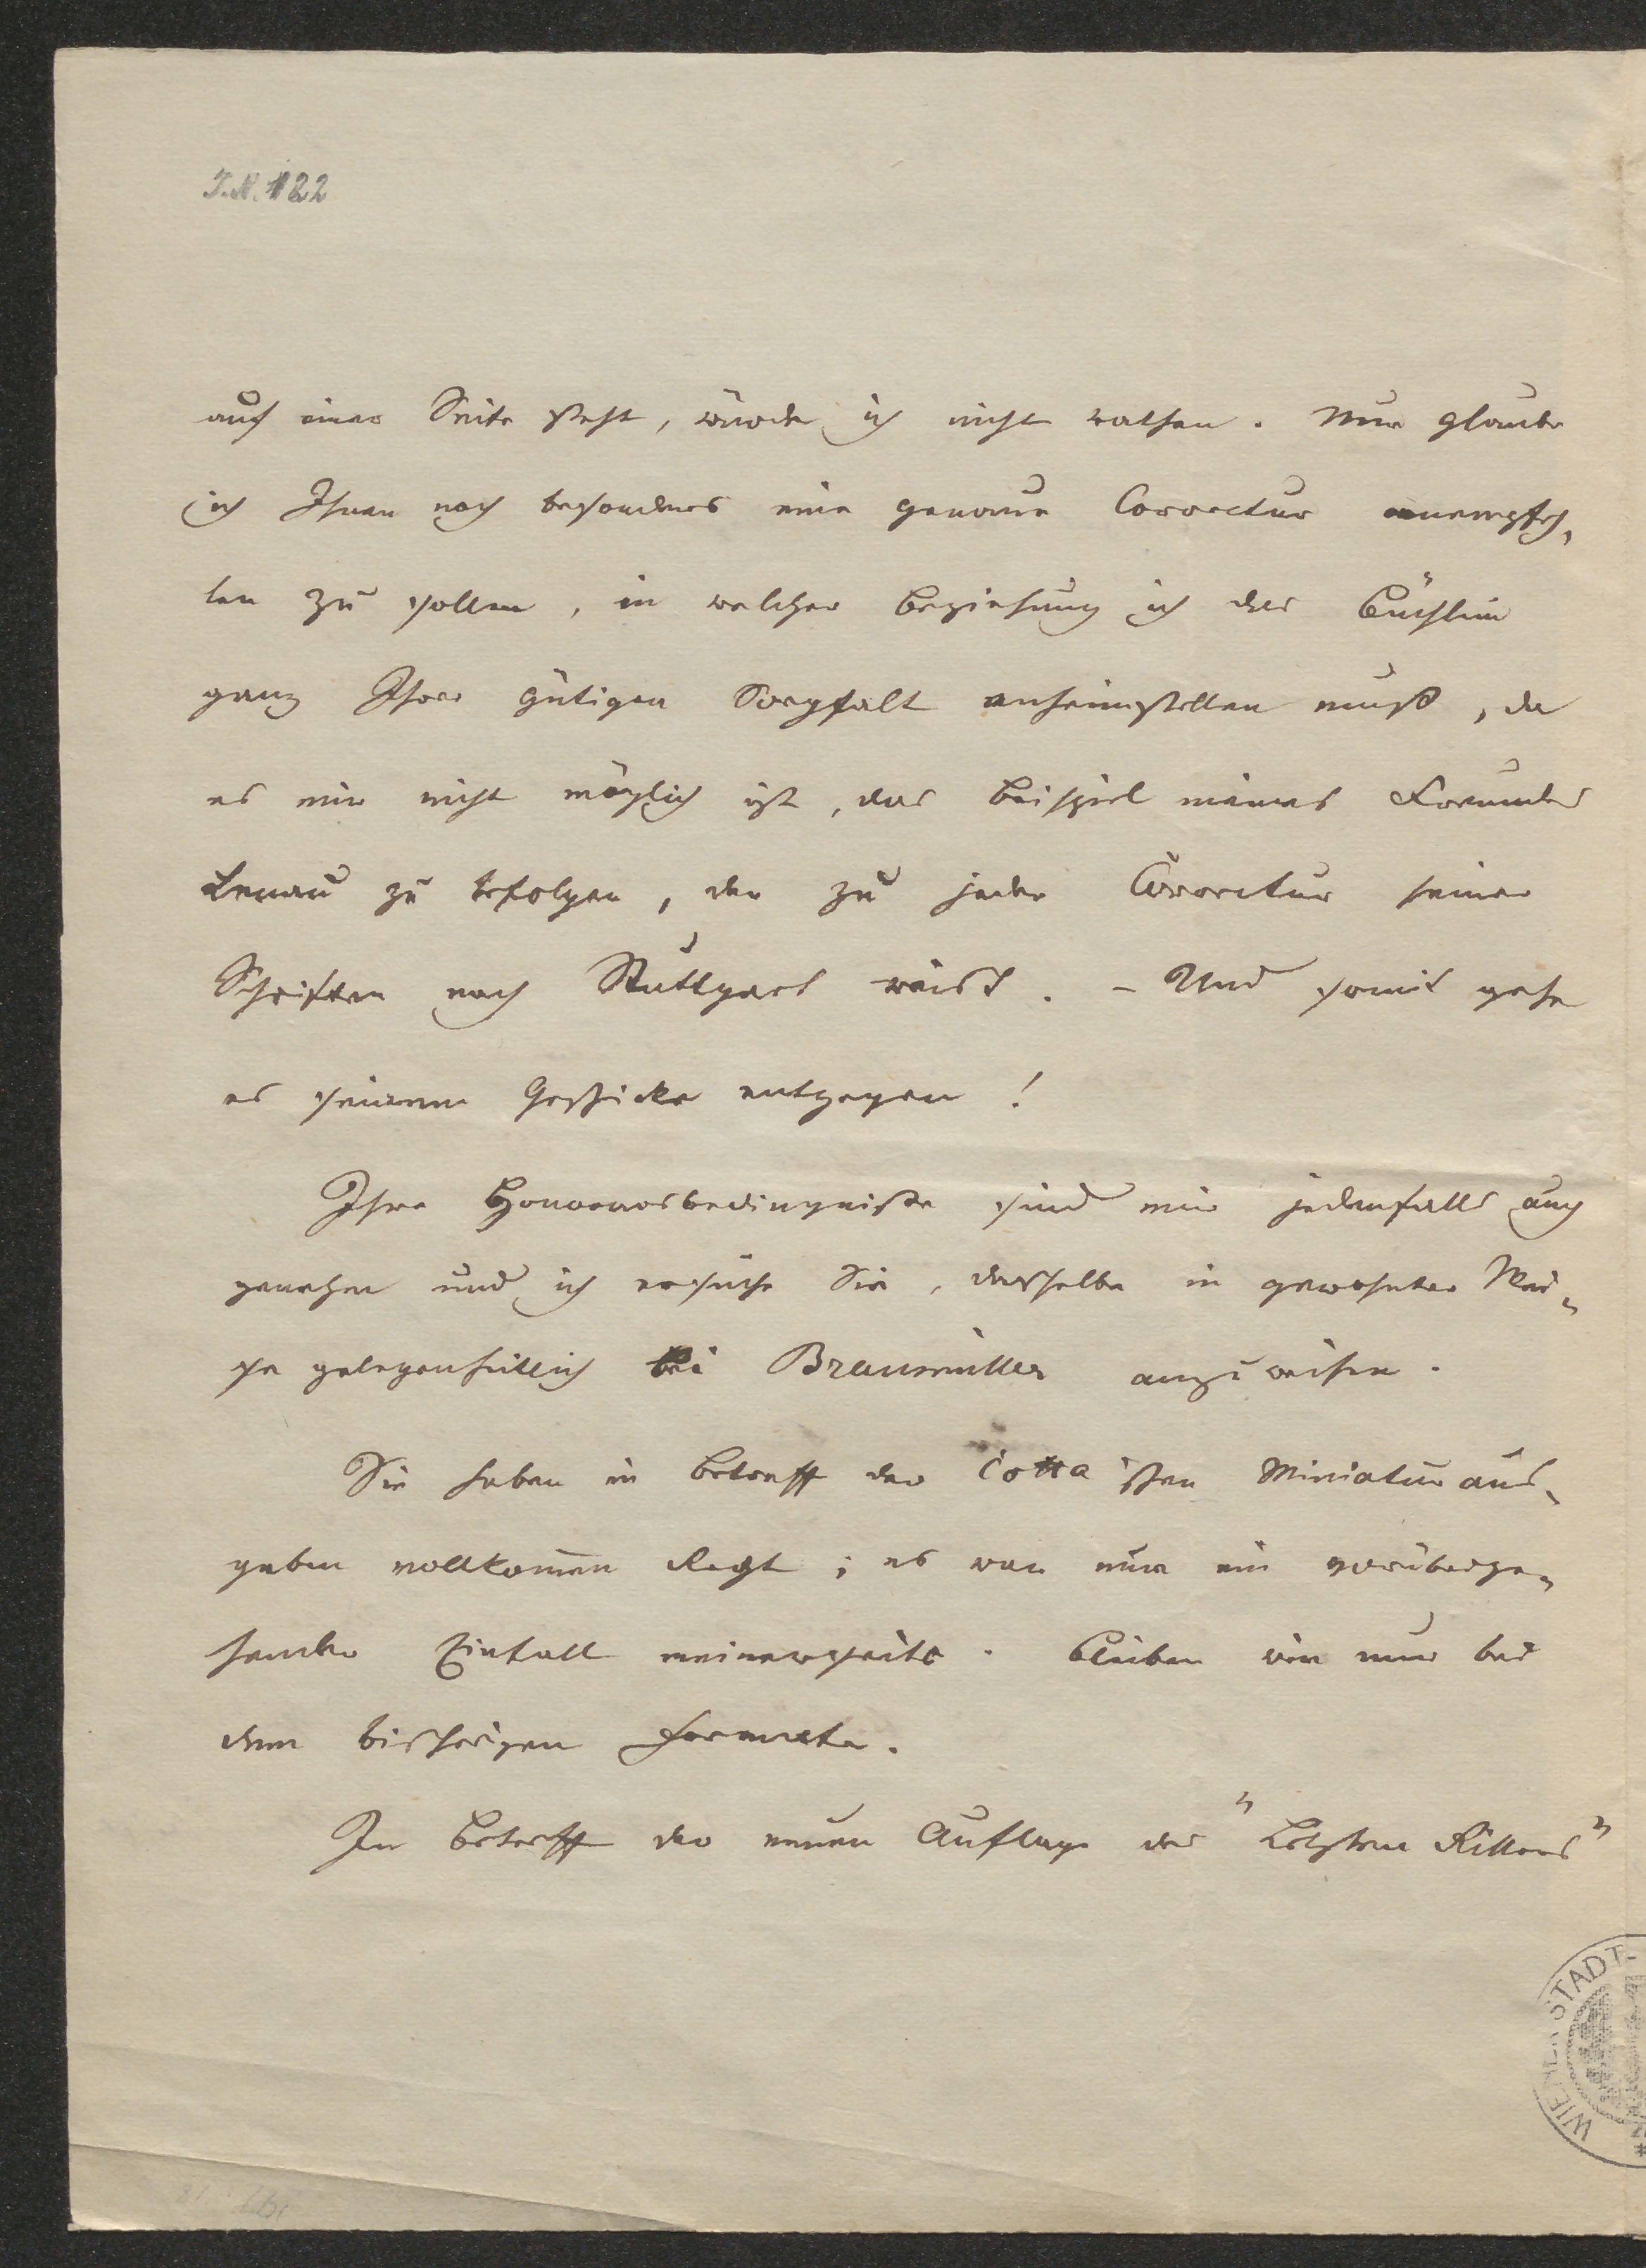 I.N. 122
auf einer Seite steht, würde ich nicht rathen. Nur glaube
ich Ihnen noch besonders eine genaue Correctur anempfeh-
len zu sollen, in welcher Beziehung ich das Büchlein
ganz Ihrer gütigen Sorgfalt anheimstellen muß, da
es mir nicht möglich ist, das Beispiel meines Freundes
Lenau zu befolgen, der zu jeder Correctur seiner
Schriften nach Stuttgart reist. – Und somit gehe
es seinem Geschicke entgegen!
Ihre Honorarsbedingnisse sind mir jedenfalls auch
genehm und ich ersuche Sie, dasselbe in gewohnter Wei-
se gelegenheitlich bei Braumüller anzuweisen.
Sie haben in Betreff der Cotta'schen Miniaturaus-
gaben vollkommen Recht; es war nur ein vorüberge-
hender Einfall meinerseits. Bleiben wir nur bei
dem bisherigen Formate.
In Betreff der neuen Auflage des "Letzten Ritters"
WIENER STADT-